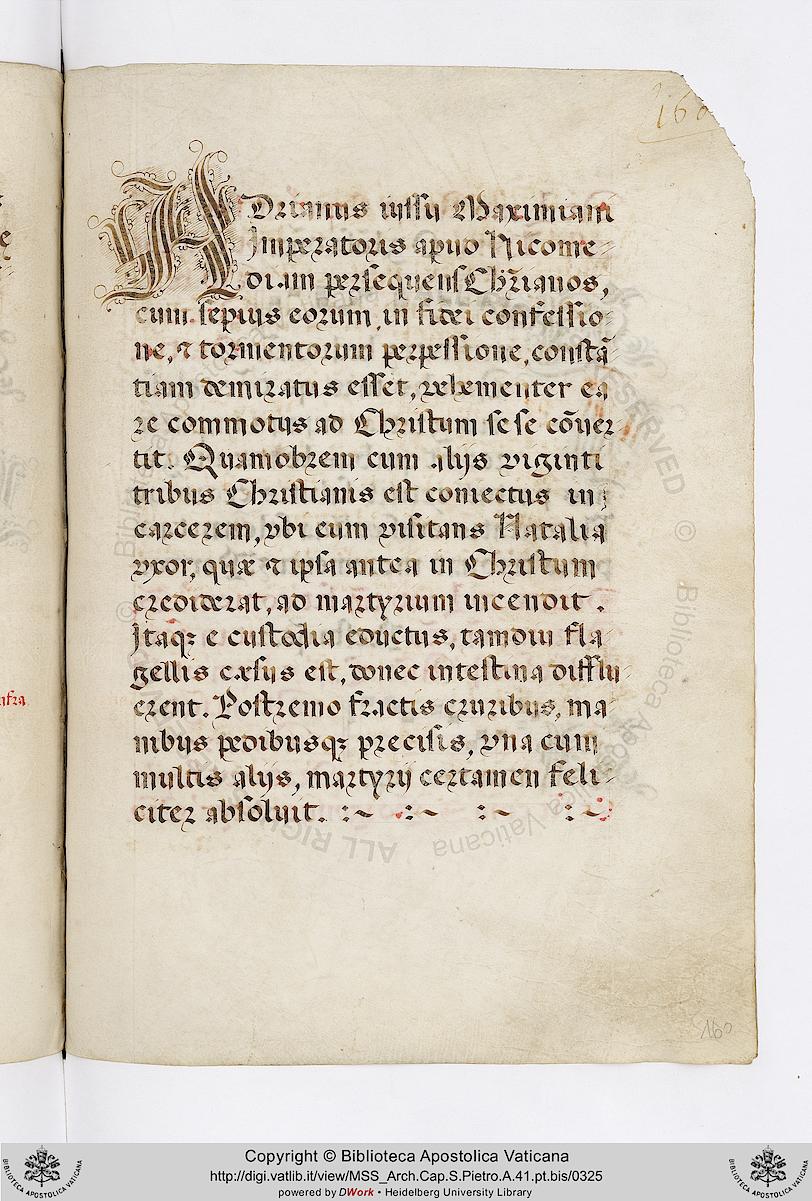 160
ADrianus iussu Maximiani
Imperatoris apud Nicome-
diam persequens Chr̃ianos,
cum sepius eorum in fidei confessio-
ne, & tormentorum perpessione, constã-
tiam demiratus esset, vehementer ea
re commotus ad Christum sese cõuer-
tit. Quamobrem cum alijs viginti
tribus Christianis est coniectus in
carcerem, vbi eum visitans Natalia
vxor, quæ & ipsa antea in Christum
crediderat, ad martyrium incendit.
Itaq; e custodia eductus, tamdiu fla-
gellis cæsus est, donec intestina difflu-
erent. Postremo fractis cruribus, ma
nibus pedibusq; precisis, vna cum
multis alijs, martyrij certamen feli-
citer absoluit. :~ :~ :~ :~
nfra
160
Copyright © Biblioteca Apostolica Vaticana
http://digi.vatlib.it/view/MSS_Arch.Cap.S.Pietro.A.41.pt.bis/0325
powered by DWork • Heidelberg University Library
BIBLIOTECA APOSTOLICA VATICANA
BIBLIOTECA APOSTOLICA VATICANA